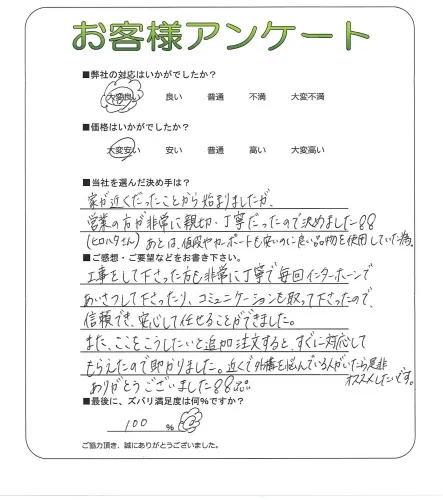 お客様アンケート
■弊社の対応はいかがでしたか?
大変良い 良い 普通 不満 大変不満
■価格はいかがでしたか?
大変安い 安い 普通 高い 大変高い
■当社を選んだ決め手は?
家が近くだったことから始まりましたが、
営業の方が非常に親切、丁寧だったので決めました!!
(ヒロハタさん) あとは、値段やカーポートも安いのに良い品物を使用していた為。
■ご感想・ご要望などをお書き下さい。
工事をして下さった方も非常に丁寧で毎回インターホーンで
あいさつして下さったり、コミュニケーションも取って下さったので、
信頼でき、安心して任せることができました。
また、ここをこうしたいと追加注文すると、すぐに対応して
もらえたので助かりました。近くで外構を悩んでいる人がいたら是非
ありがとうございました!! オススメしたいです。
■最後に、ズバリ満足度は何%ですか?
100 %
ご協力頂き、誠にありがとうございました。